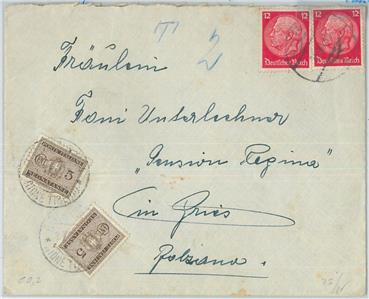 12 12
Deutsches Reich Deutsches Reich
T 2
Fräulein
Fani Unterlechner
"Pension Regina"
in Gries
Bolzano.
5
5